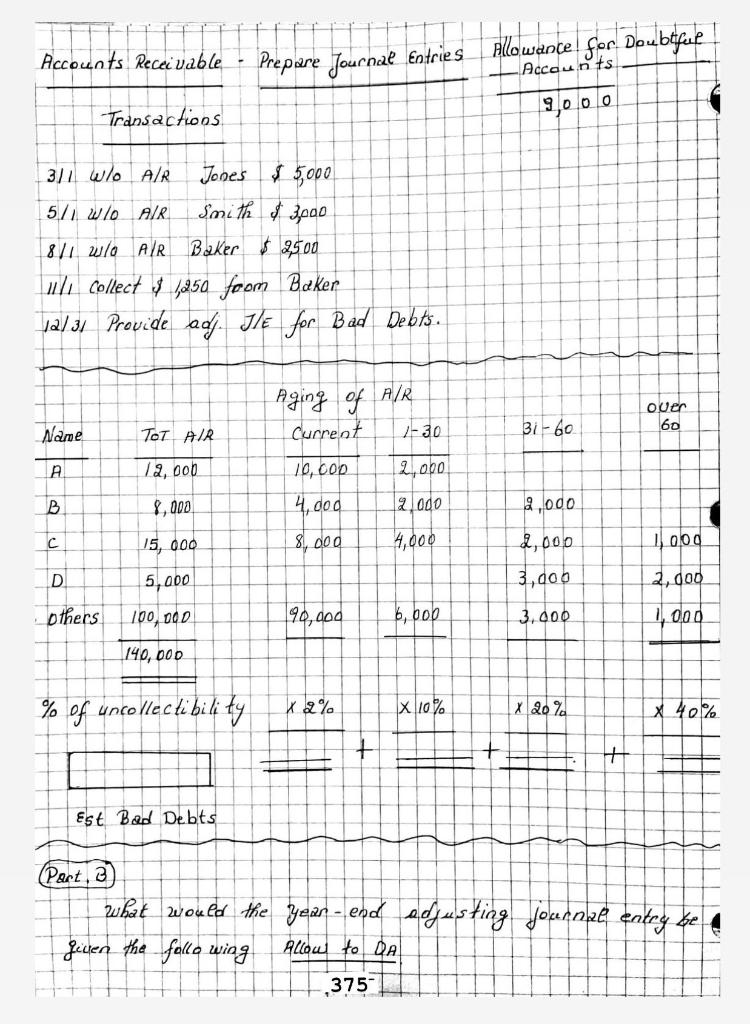 Accounts Receivable - Prepare Journal Entries Allowance for Doubtful Accounts
9,000
Transactions
3/1 w/o A/R Jones $ 5,000
5/1 w/o A/R Smith $ 3,000
8/1 w/o A/R Baker $ 2500
11/1 Collect $ 1,250 from Baker
12/31 Provide adj. J/E for Bad Debts.
Aging of A/R
Name TOT A/R Current 1-30 31-60 over 60
A 12,000 10,000 2,000
B 8,000 4,000 2,000 2,000
C 15,000 8,000 4,000 2,000 1,000
D 5,000 3,000 2,000
others 100,000 90,000 6,000 3,000 1,000
140,000
% of uncollectibility x 2% x 10% x 20% x 40%
+ + +
Est Bad Debts
Part. B
What would the year-end adjusting journal entry be
given the following Allow to DA
375